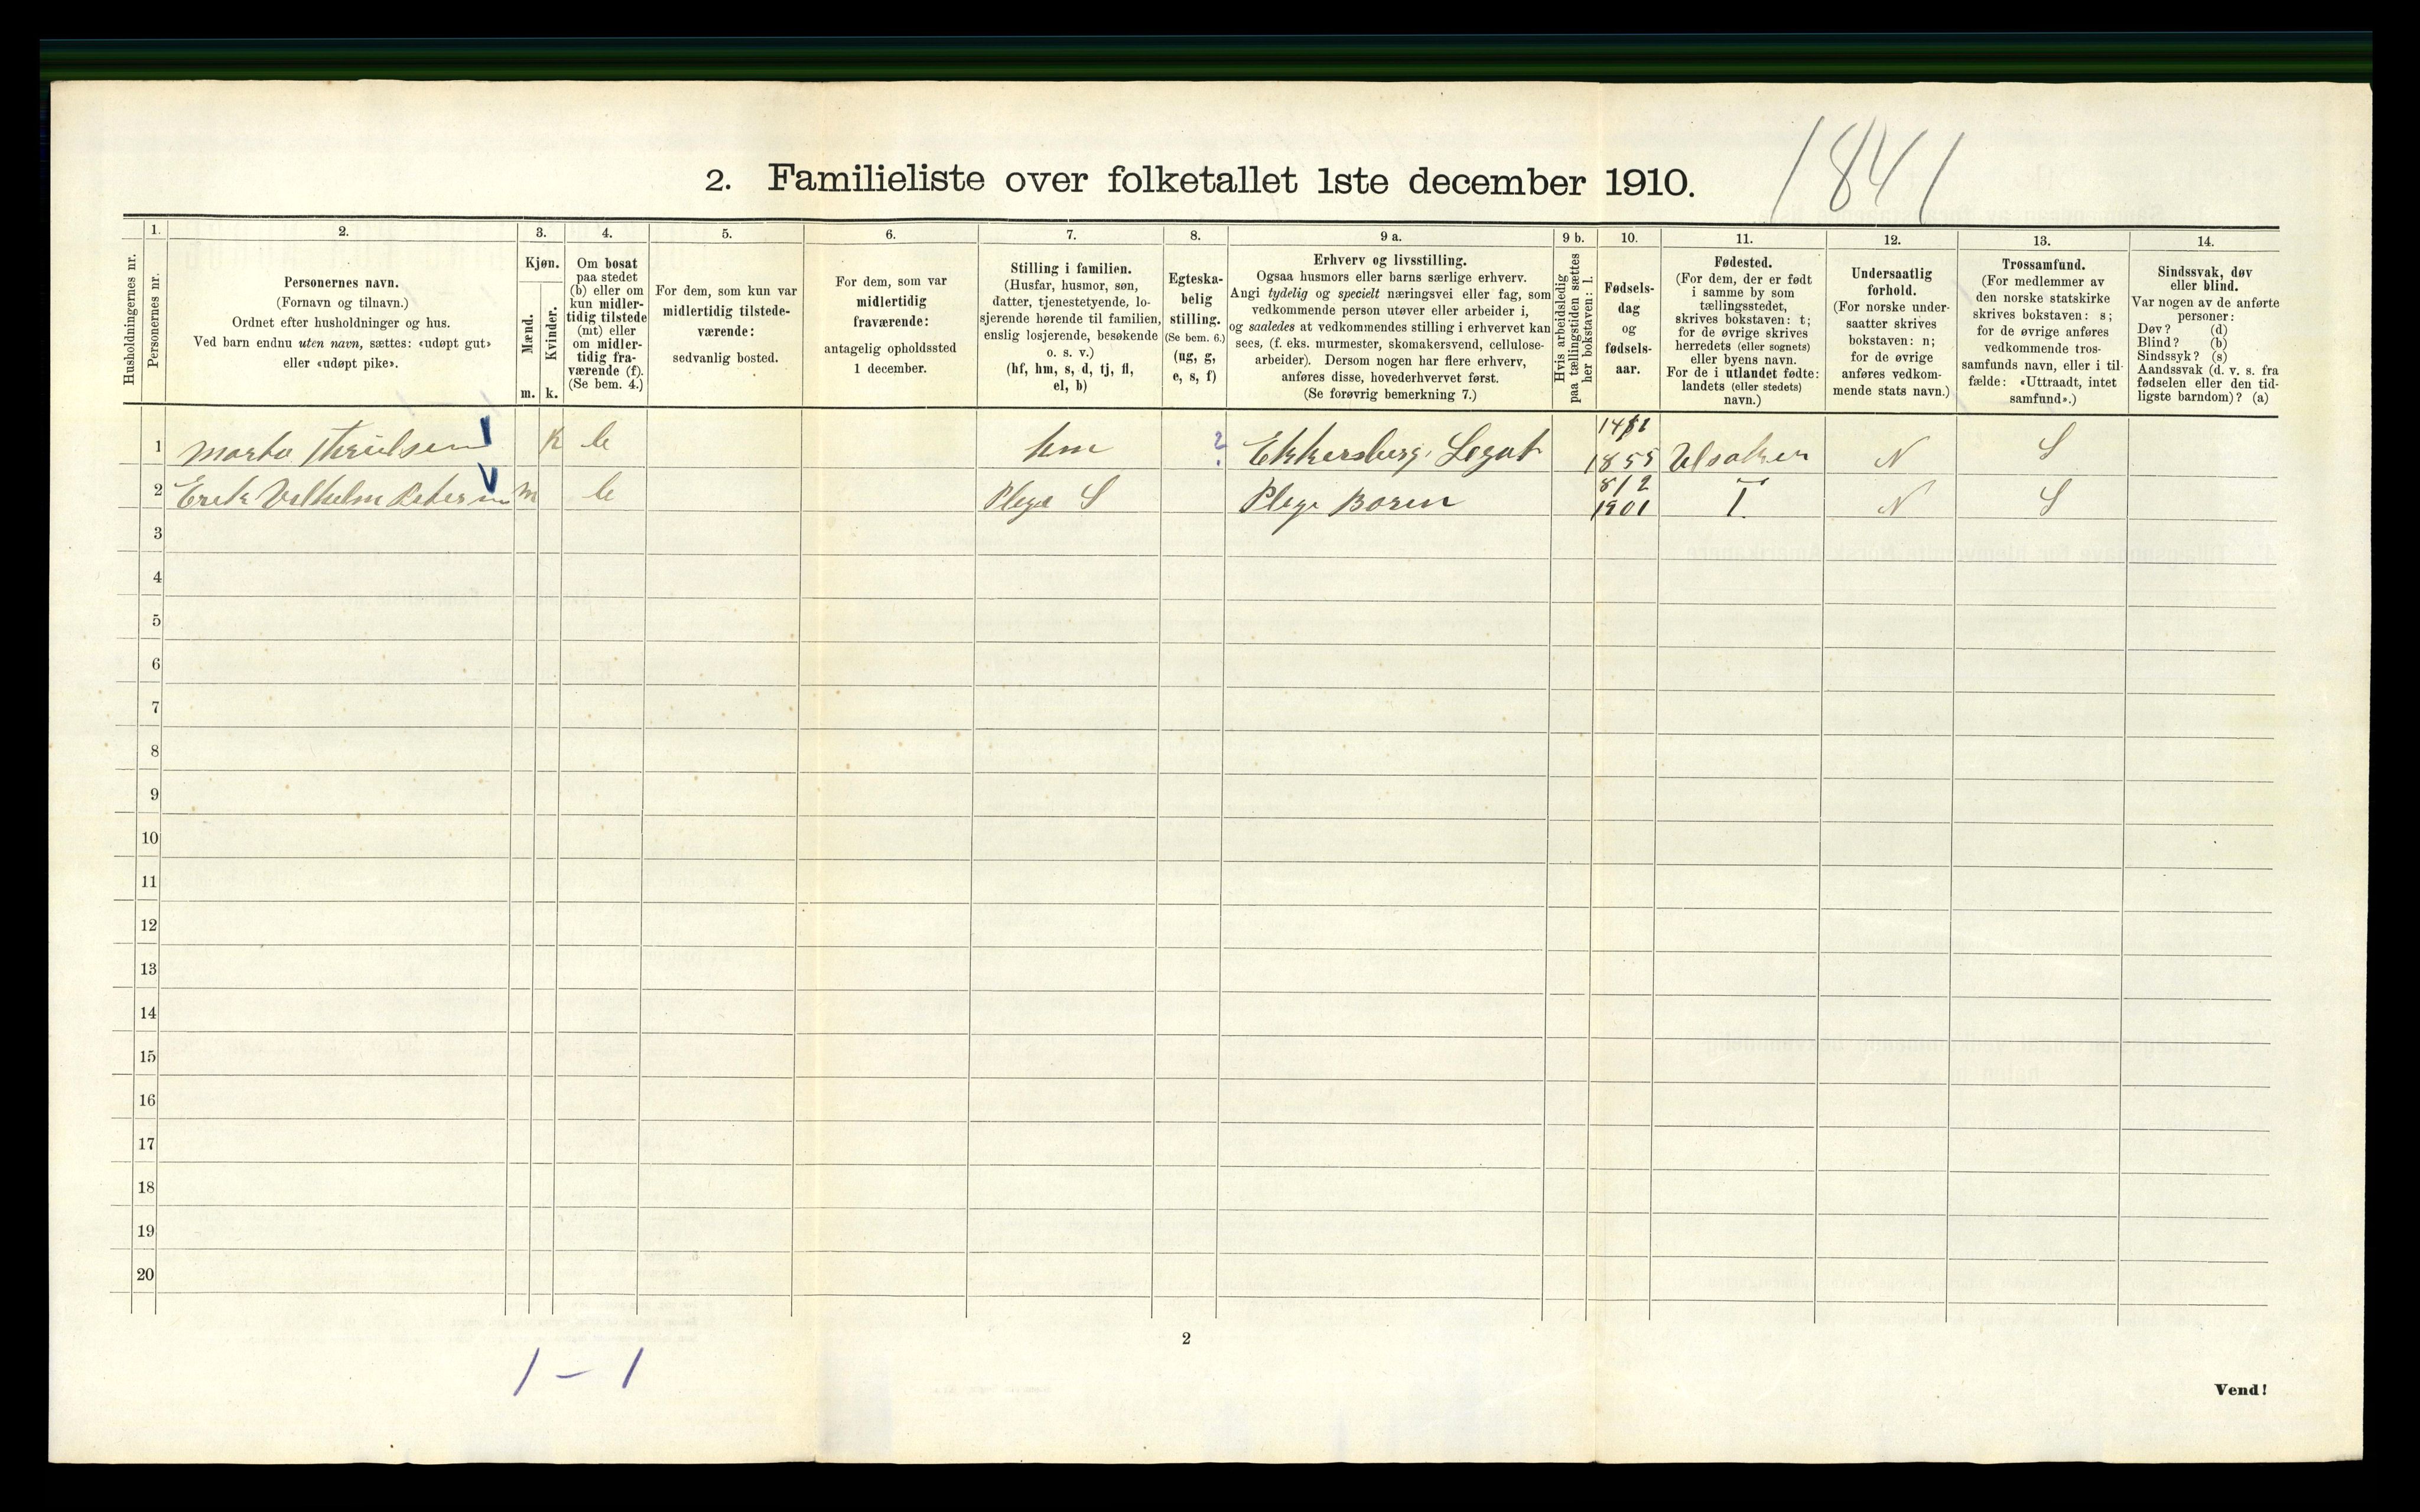 1841
2. Familieliste over folketallet 1ste december 1910.
Husholdningernes nr.
1.
Personernes nr.
2.
Personernes navn.
(Fornavn og tilnavn.)
Ordnet efter husholdninger og hus.
Ved barn endnu uten navn, sættes: «udøpt gut»
eller «udøpt pike».
3.
Kjøn.
Mænd.
Kvinder.
m. k.
4.
Om bosat
paa stedet
(b) eller om
kun midler-
tidig tilstede
(mt) eller
om midler-
tidig fra-
værende (f).
(Se bem. 4.)
5.
For dem, som kun var
midlertidig tilstede-
værende:
sedvanlig bosted.
6.
For dem, som var
midlertidig
fraværende:
antagelig opholdssted
1 december.
7.
Stilling i familien.
(Husfar, husmor, søn,
datter, tjenestetyende, lo-
sjerende hørende til familien,
enslig losjerende, besøkende
o. s. v.)
(hf, hm, s, d, tj, fl,
el, b)
8.
Egteska-
belig
stilling.
(Se bem. 6.)
(ug, g,
e, s, f)
9 a.
Erhverv og livsstilling.
Ogsaa husmors eller barns særlige erhverv.
Angi tydelig og specielt næringsvei eller fag, som
vedkommende person utøver eller arbeider i,
og saaledes at vedkommendes stilling i erhvervet kan
sees, (f. eks. murmester, skomakersvend, cellulose-
arbeider). Dersom nogen har flere erhverv,
anføres disse, hovederhvervet først.
(Se forøvrig bemerkning 7.)
9 b.
Hvis arbeidsledig
paa tællingstiden sættes
her bokstaven: l.
10.
Fødsels-
dag
og
fødsels-
aar.
11.
Fødested.
(For dem, der er født
i samme by som
tællingsstedet,
skrives bokstaven: t;
for de øvrige skrives
herredets (eller sognets)
eller byens navn.
For de i utlandet fødte:
landets (eller stedets)
navn.)
12.
Undersaatlig
forhold.
(For norske under-
saatter skrives
bokstaven: n;
for de øvrige
anføres vedkom-
mende stats navn.)
13.
Trossamfund.
(For medlemmer av
den norske statskirke
skrives bokstaven: s;
for de øvrige anføres
vedkommende tros-
samfunds navn, eller i til-
fælde: «Uttraadt, intet
samfund».)
14.
Sindssvak, døv
eller blind.
Var nogen av de anførte
personer:
Døv? (d)
Blind? (b)
Sindssyk? (s)
Aandssvak (d. v. s. fra
fødselen eller den tid-
ligste barndom)? (a)
1 K b hm ? Ekkersberg Legat 1855 Ulsaker N S
2 Erik Vilhelm Petersen m b Pleje S Pleje Boren 8/12 1901 T N S
3
4
5
6
7
8
9
10
11
12
13
14
15
16
17
18
19
20
2
1 - 1
Vend!